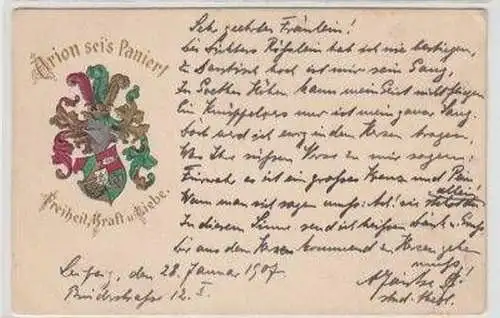 Arion sei's Panier!
Freiheit, Kraft u. Liebe.
Sehr geehrtes Fräulein!
Des Dichters Rößlein hab ich nie bestiegen,
Z' dantisch hoch ist mir sein Gang,
In Goethes Höhen kann mein Geist nicht fliegen
Ein Knüppelvers nur ist mein ganzer Sang.
Doch werd ich ewig in dem Herzen tragen,
Was Ihre süßen Verse zu mir sagen;
Fürwahr es ist ein großes Kreuz und Pein
Wenn man sich sagen muß: Ach!
In diesem Sinne send ich heißen Dank u. Gruß
Der aus dem Herzen kommend z. Herzen gehen
muß!
Leipzig, den 28. Januar 1907
Brüderstraße 12. I.
stud. theol.